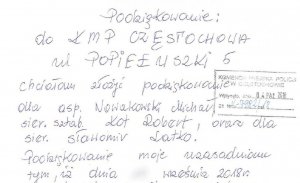 Podziękowanie:
do KMP CZĘSTOCHOWA
ul POPIEŁUSZKI 5
chciałam złożyć podziękowanie
dla asp. Nowakowski Michał
sier. sztab. Kot Robert, oraz dla
sier. Sławomir Łatko.
Podziękowanie moje uzasadniam
tym, iż dnia września 2018r.
KOMENDA MIEJSKA POLICJI
W CZĘSTOCHOWIE